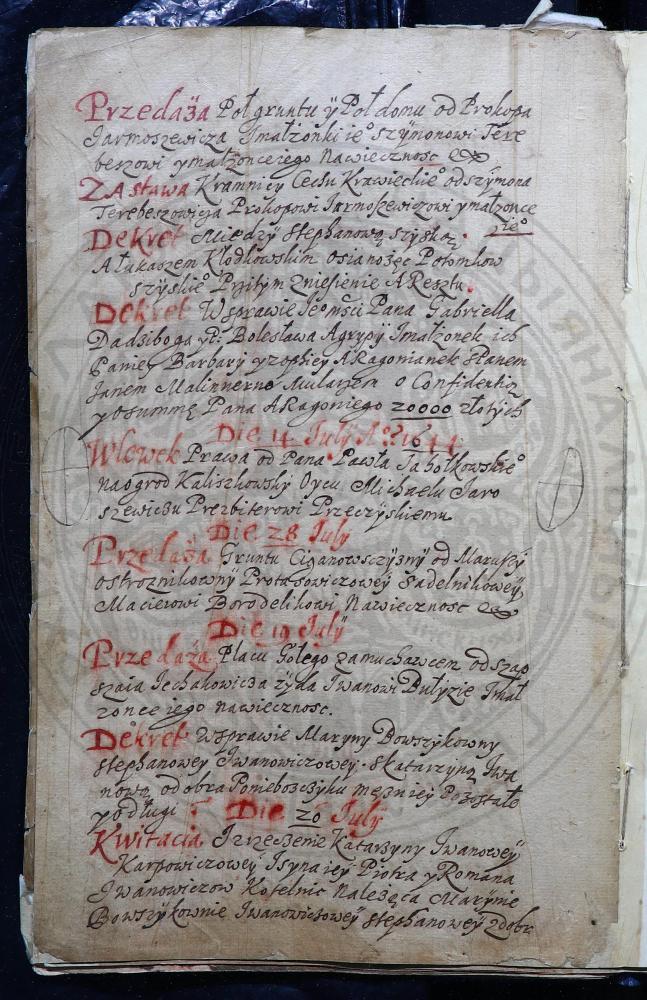 Przedaża Poł gruntu y Poł domu od Prokopa
Jarmoszewicza Ymałżonki ieº Szymonowi Tere
beszowi ymałżonce iego Nawieczność
ZAstawa Kramnicy Cechu Krawieckieº od Szymona
Terebeszowicza Prokopowi Jarmoszewiczowi ymałżonce
ieº
Dekret Między Stephanową
A Łukaszem Kłodkowskim Potomkow
Przytym zniesienie AResztu.
Dekret Wsprawie Jeºmści Pana Gabriella
Dadziboga Bolesława Agrypy Imałżonek ich
Paniey Barbary yzophiey ARagonianek Spanem
Janem Mularzem o Confidentią
yosummę Pana ARagoniego 20000 złotych
Die 14 July Aº 1644
Wlewek Prawa od Pana Pawła Jabołkowskieº
naogrod Kaliszkowsky Oycu Michaelu Jaro
szewiczu Prezbiterowi Przeczyskiemu
Die 28 July
Przedaża Gruntu Ciganowsczyzny od Maruszy
Ostroznikowny Protasowiczowey Sadelnikowey
Macieiowi Borodelikowi Nawieczność
Die 19 July
Przedaża Placu Gołego zamuchawcem od Szap
szaia Jechakowicza żyda Iwanowi Dułyzie Ymał
zonce iego nawieczność.
Dekret Wsprawie Maryny Bowszykowny
Stephanowey Iwanowiczowey. Skatarzyną Iwa
nową odobra Poniebozczyku mężu iey Pozostałe
yodługi
Die 20 July
Kwitacia Izrzeczenie Katarzyny Iwanowey
Karpowiczowey Isyna iey Piotra y Romana
Iwanowiczow Kotelnic Należąca Marynie
Bowszykownie Iwanowiczowey Stephanowey zdobr